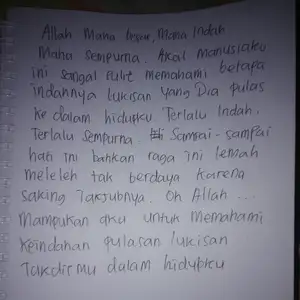 Allah Maha besar, Maha Indah
Maha sempurna. Akal Manusiaku
ini sangat sulit memahami betapa
indahnya lukisan yang Dia pulas
ke dalam hidupku Terlalu Indah,
Terlalu Sempurna. Sampai-sampai
hati ini bahkan raga ini lemah
meleleh tak berdaya karena
saking Takjubnya. Oh Allah ...
Mampukan aku untuk Memahami
Keindahan pulasan lukisan
TakdirMu dalam hidupku